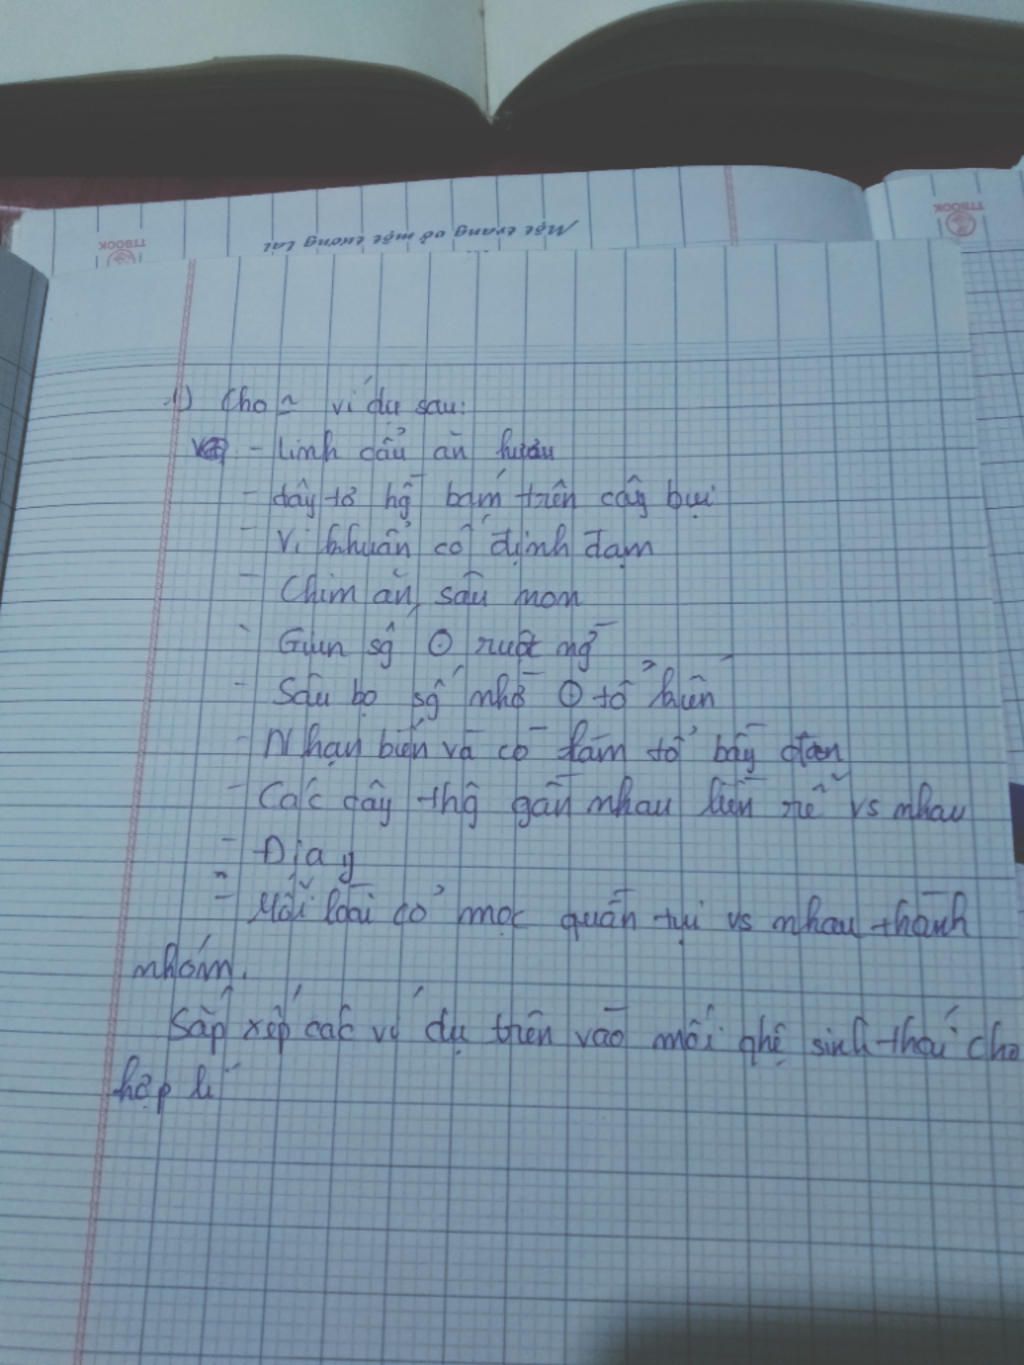 TTBOOK
TTBOOK
Một trang ở một trong lai
1) Cho ~ ví dụ sau:
- Linh cẩu ăn hươu
- dây tơ hg bám trên cây bụi
- Vi khuẩn cố định đạm
- Chim ăn sâu mọn
- Giun sg ⊙ ruột ng
- Sâu bọ sg nhờ ⊙ tổ kiến
- Nhạn biển và cò làm tổ bầy đàn
- Các cây thg gần nhau liền rễ vs nhau
- Địa y
- Mỗi loài cỏ mọc quần tụi vs nhau thành
nhóm.
Sắp xếp các ví dụ trên vào mối qhệ sinh thái cho
hợp lí